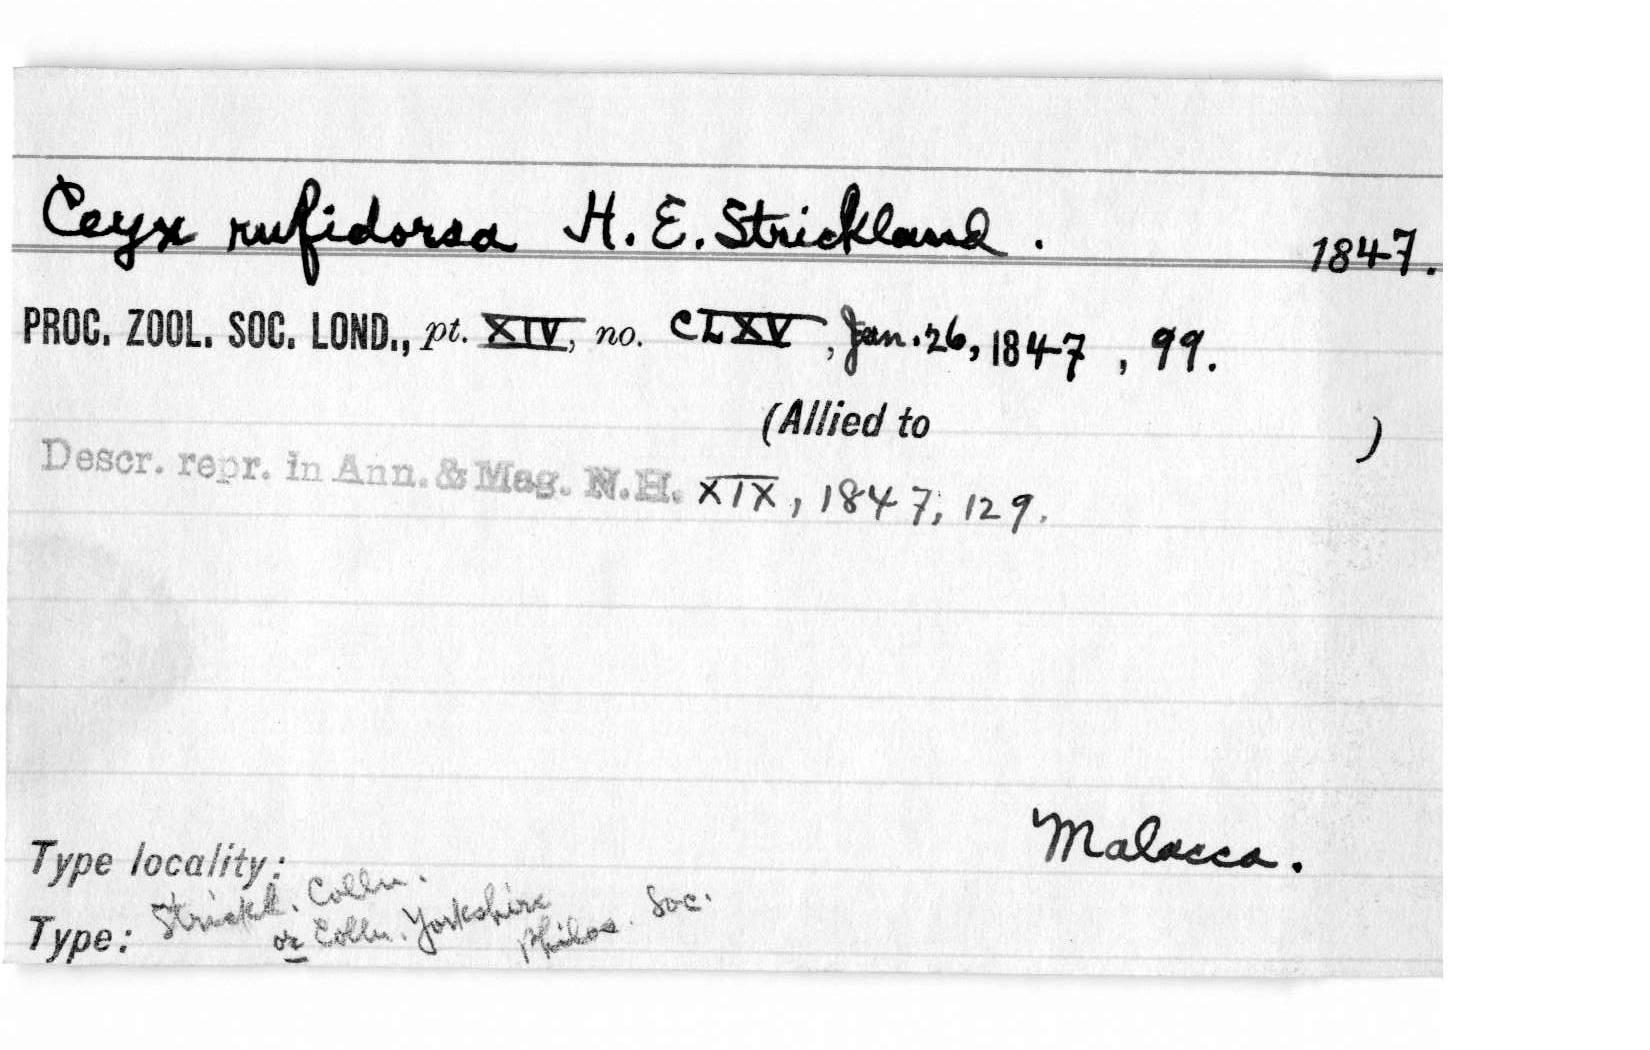 Ceyx rufidorsa H. E. Strickland. 1847.
PROC. ZOOL. SOC. LOND., pt. XIV, no. CLXV, Jan. 26, 1847, 99.
(Allied to )
Descr. repr. in Ann. & Mag. N.H. XIX, 1847, 129.
Malacca.
Type locality:
Type: Strickl. Colln.
or Colln. Yorkshire
Philos. Soc.